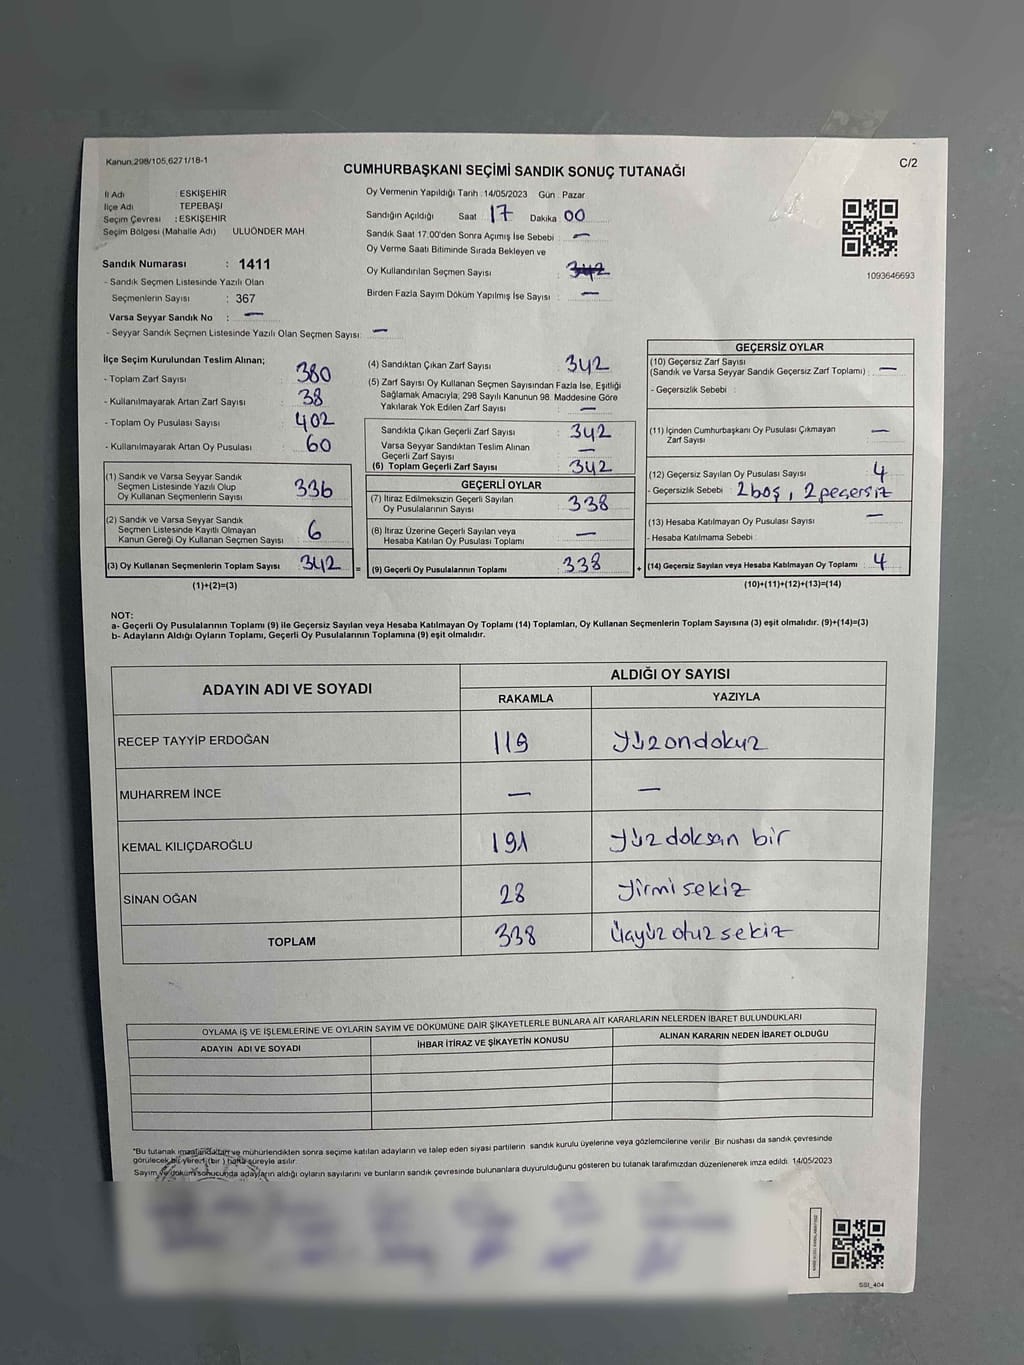 Kanun.298/105,6271/18-1
C/2
CUMHURBAŞKANI SEÇİMİ SANDIK SONUÇ TUTANAĞI
İl Adı : ESKİŞEHİR
İlçe Adı : TEPEBAŞI
Seçim Çevresi : ESKİŞEHİR
Seçim Bölgesi (Mahalle Adı) ULUÖNDER MAH.
Sandık Numarası : 1411
- Sandık Seçmen Listesinde Yazılı Olan
Seçmenlerin Sayısı : 367
Varsa Seyyar Sandık No : —
- Seyyar Sandık Seçmen Listesinde Yazılı Olan Seçmen Sayısı: —
Oy Vermenin Yapıldığı Tarih : 14/05/2023 Gün : Pazar
Sandığın Açıldığı Saat 17 Dakika 00
Sandık Saat 17:00'den Sonra Açımış İse Sebebi : —
Oy Verme Saati Bitiminde Sırada Bekleyen ve
Oy Kullandırılan Seçmen Sayısı : 342
Birden Fazla Sayım Döküm Yapılmış İse Sayısı : —
1093646693
İlçe Seçim Kurulundan Teslim Alınan;
- Toplam Zarf Sayısı : 380
- Kullanılmayarak Artan Zarf Sayısı : 38
- Toplam Oy Pusulası Sayısı : 402
- Kullanılmayarak Artan Oy Pusulası : 60
(1) Sandık ve Varsa Seyyar Sandık
Seçmen Listesinde Yazılı Olup
Oy Kullanan Seçmenlerin Sayısı 336
(2) Sandık ve Varsa Seyyar Sandık
Seçmen Listesinde Kayıtlı Olmayan
Kanun Gereği Oy Kullanan Seçmen Sayısı : 6
(3) Oy Kullanan Seçmenlerin Toplam Sayısı : 342 =
(1)+(2)=(3)
(4) Sandıktan Çıkan Zarf Sayısı : 342
(5) Zarf Sayısı Oy Kullanan Seçmen Sayısından Fazla İse, Eşitliği
Sağlamak Amacıyla; 298 Sayılı Kanunun 98. Maddesine Göre
Yakılarak Yok Edilen Zarf Sayısı : —
Sandıkta Çıkan Geçerli Zarf Sayısı : 342
Varsa Seyyar Sandıktan Teslim Alınan
Geçerli Zarf Sayısı : —
(6) Toplam Geçerli Zarf Sayısı : 342
GEÇERLİ OYLAR
(7) İtiraz Edilmeksizin Geçerli Sayılan
Oy Pusulalarının Sayısı : 338
(8) İtiraz Üzerine Geçerli Sayılan veya
Hesaba Katılan Oy Pusulası Toplamı : —
(9) Geçerli Oy Pusulalarının Toplamı : 338 +
GEÇERSİZ OYLAR
(10) Geçersiz Zarf Sayısı
(Sandık ve Varsa Seyyar Sandık Geçersiz Zarf Toplamı) : —
- Geçersizlik Sebebi :
(11) İçinden Cumhurbaşkanı Oy Pusulası Çıkmayan
Zarf Sayısı : —
(12) Geçersiz Sayılan Oy Pusulası Sayısı : 4
- Geçersizlik Sebebi : 2 boş, 2 geçersiz
(13) Hesaba Katılmayan Oy Pusulası Sayısı : —
- Hesaba Katılmama Sebebi :
(14) Geçersiz Sayılan veya Hesaba Katılmayan Oy Toplamı : 4
(10)+(11)+(12)+(13)=(14)
NOT:
a- Geçerli Oy Pusulalarının Toplamı (9) ile Geçersiz Sayılan veya Hesaba Katılmayan Oy Toplamı (14) Toplamları, Oy Kullanan Seçmenlerin Toplam Sayısına (3) eşit olmalıdır. (9)+(14)=(3)
b- Adayların Aldığı Oyların Toplamı, Geçerli Oy Pusulalarının Toplamına (9) eşit olmalıdır.
ADAYIN ADI VE SOYADI
ALDIĞI OY SAYISI
RAKAMLA YAZIYLA
RECEP TAYYİP ERDOĞAN 119 Yüzondokuz
MUHARREM İNCE — —
KEMAL KILIÇDAROĞLU 191 Yüzdoksan bir
SİNAN OĞAN 28 Yirmisekiz
TOPLAM 338 Üçyüz otuz sekiz
OYLAMA İŞ VE İŞLEMLERİNE VE OYLARIN SAYIM VE DÖKÜMÜNE DAİR ŞİKAYETLERLE BUNLARA AİT KARARLARIN NELERDEN İBARET BULUNDUKLARI
ADAYIN ADI VE SOYADI İHBAR İTİRAZ VE ŞİKAYETİN KONUSU ALINAN KARARIN NEDEN İBARET OLDUĞU
*Bu tutanak imzalandıktan ve mühürlendikten sonra seçime katılan adayların ve talep eden siyasi partilerin sandık kurulu üyelerine veya gözlemcilerine verilir. Bir nüshası da sandık çevresinde
görülecek bir yere 1 (bir) hafta süreyle asılır.
Sayım ve döküm sonucunda adayların aldığı oyların sayılarını ve bunların sandık çevresinde bulunanlara duyurulduğunu gösteren bu tutanak tarafımızdan düzenlenerek imza edildi. 14/05/2023
SSI_404